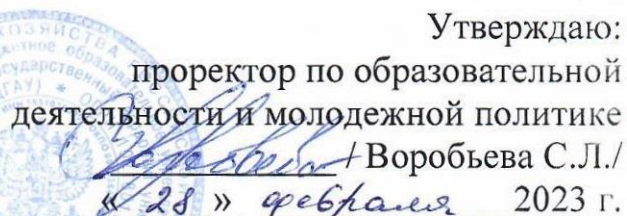 ХОЗЯЙСТВА
Утверждаю:
проректор по образовательной
деятельности и молодежной политике
/ Воробьева С.Л./
« 28 » февраля 2023 г.